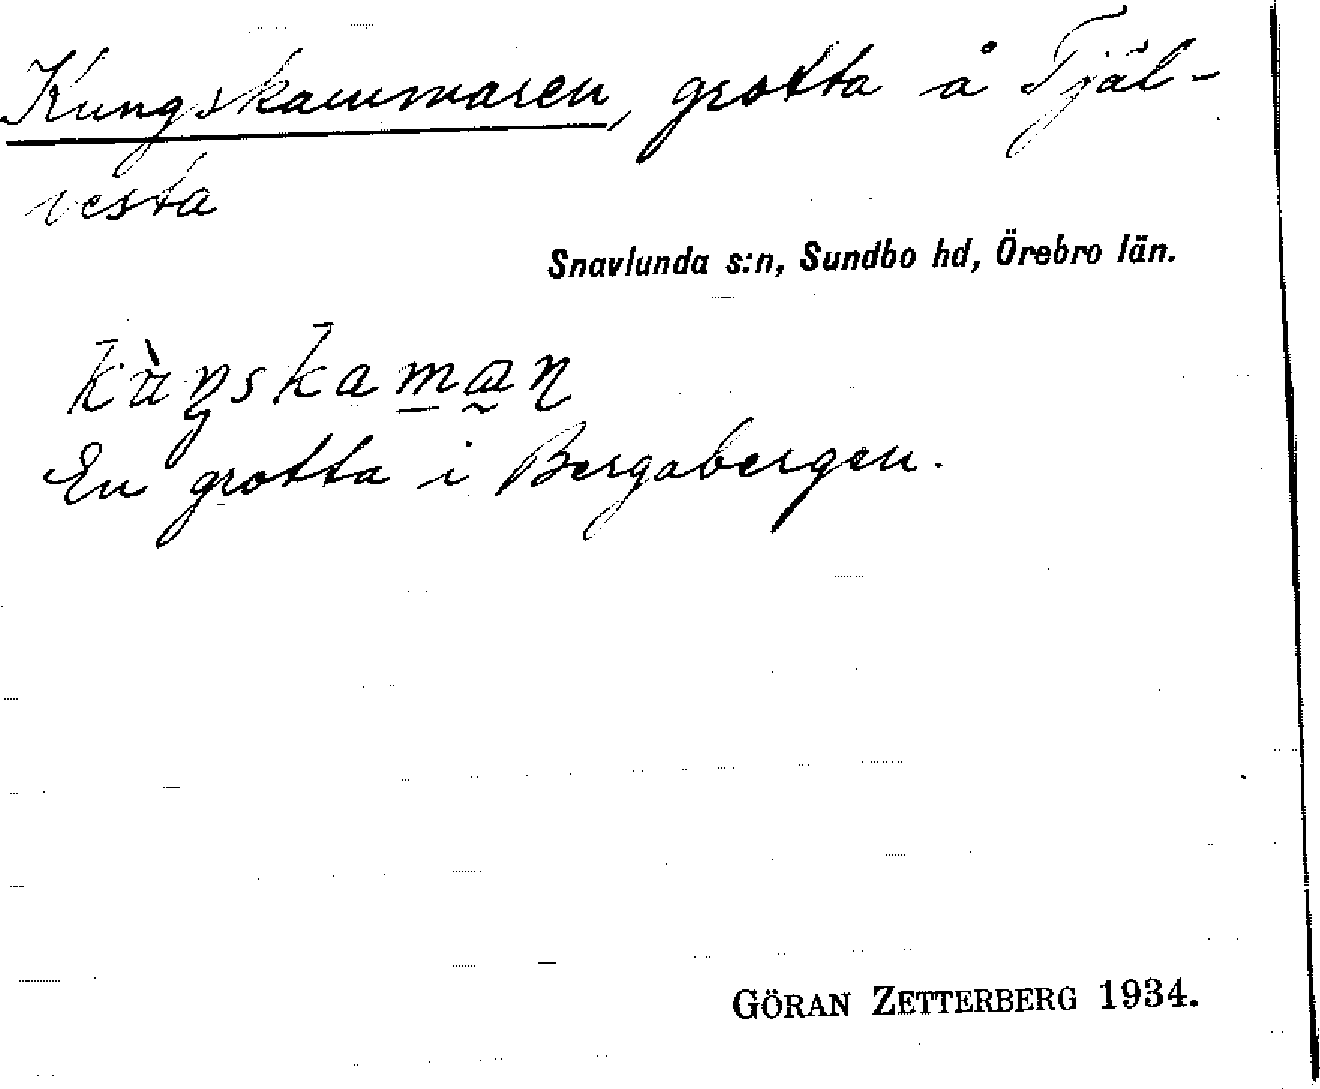 Kungskammaren, grotta å Tjäl-
vesta
Snavlunda s:n, Sundbo hd, Örebro län.
kùŋskaman
En grotta i Bergabergen.
GÖRAN ZETTERBERG 1934.